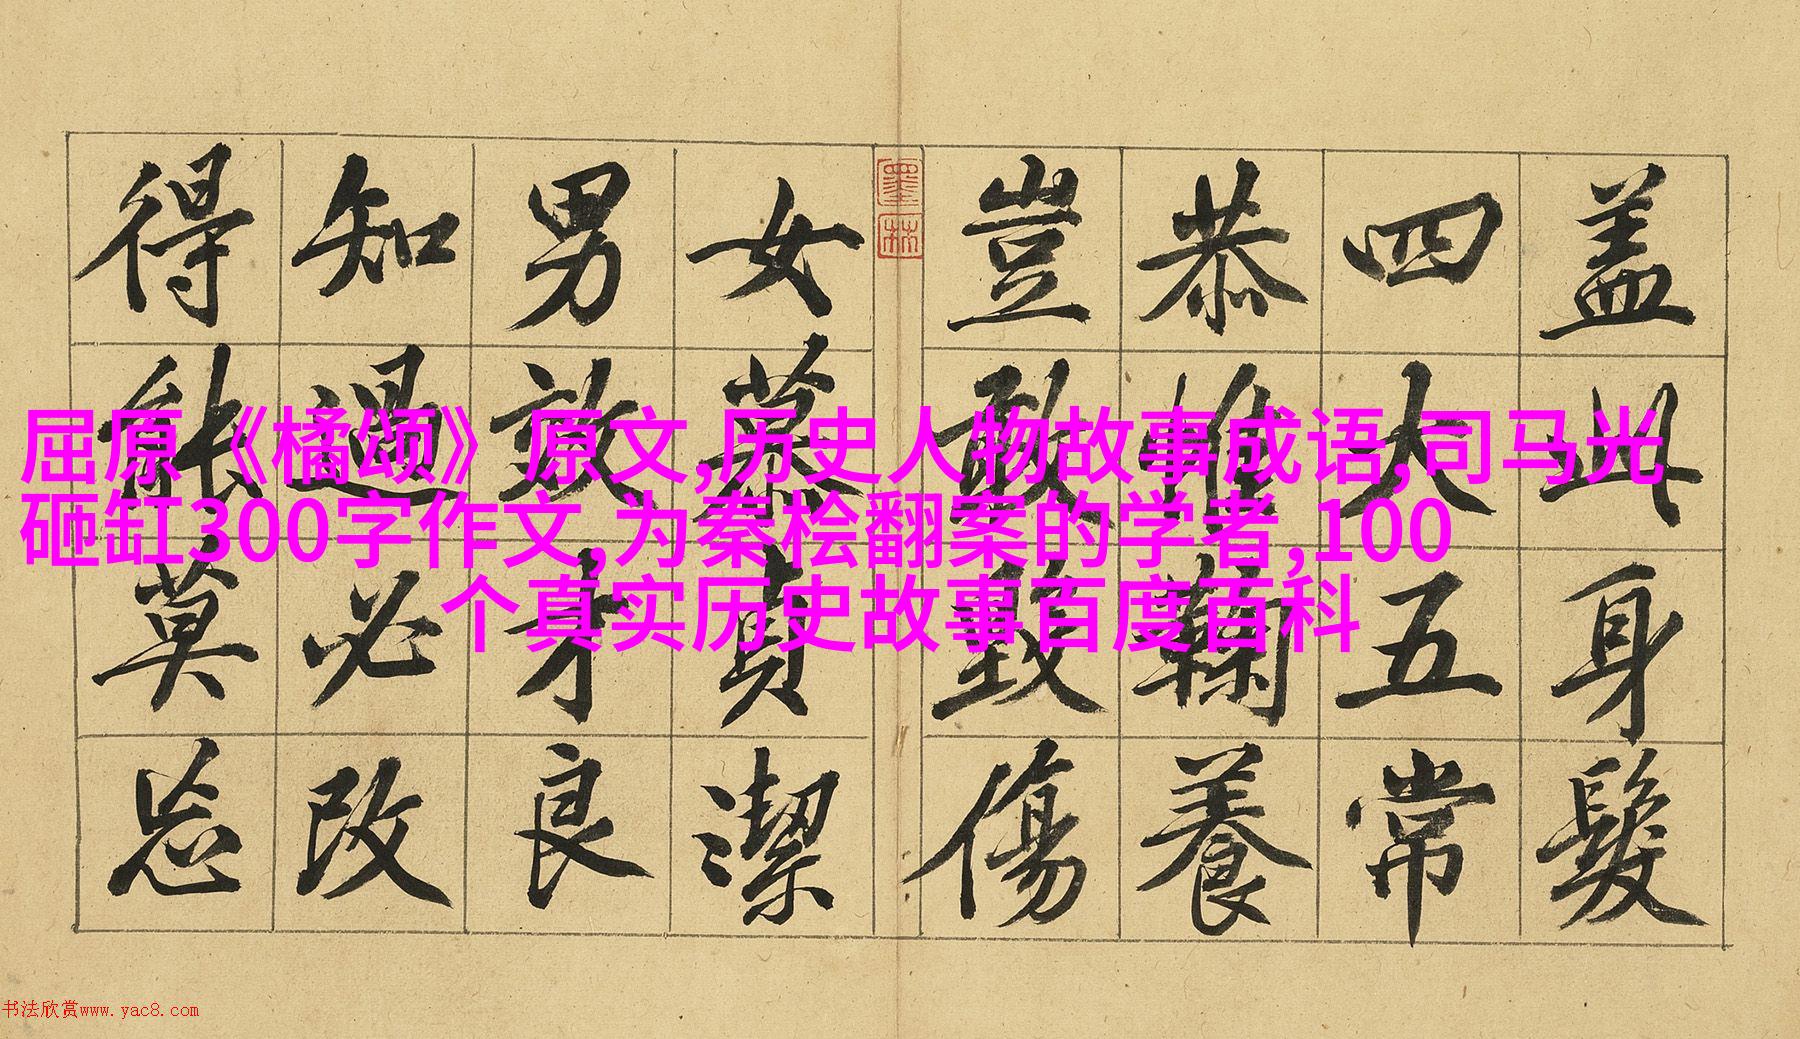 盖此身髮
四大五常
恭惟鞠養
豈敢毀傷
墨林
女慕貞潔
男效才良
知過必改
得能莫忘
屈原《橘颂》原文,历史人物故事成语,司马光
砸缸300字作文,为秦桧翻案的学者,100
个真实历史故事百度百科
书法欣赏www.yac8.com